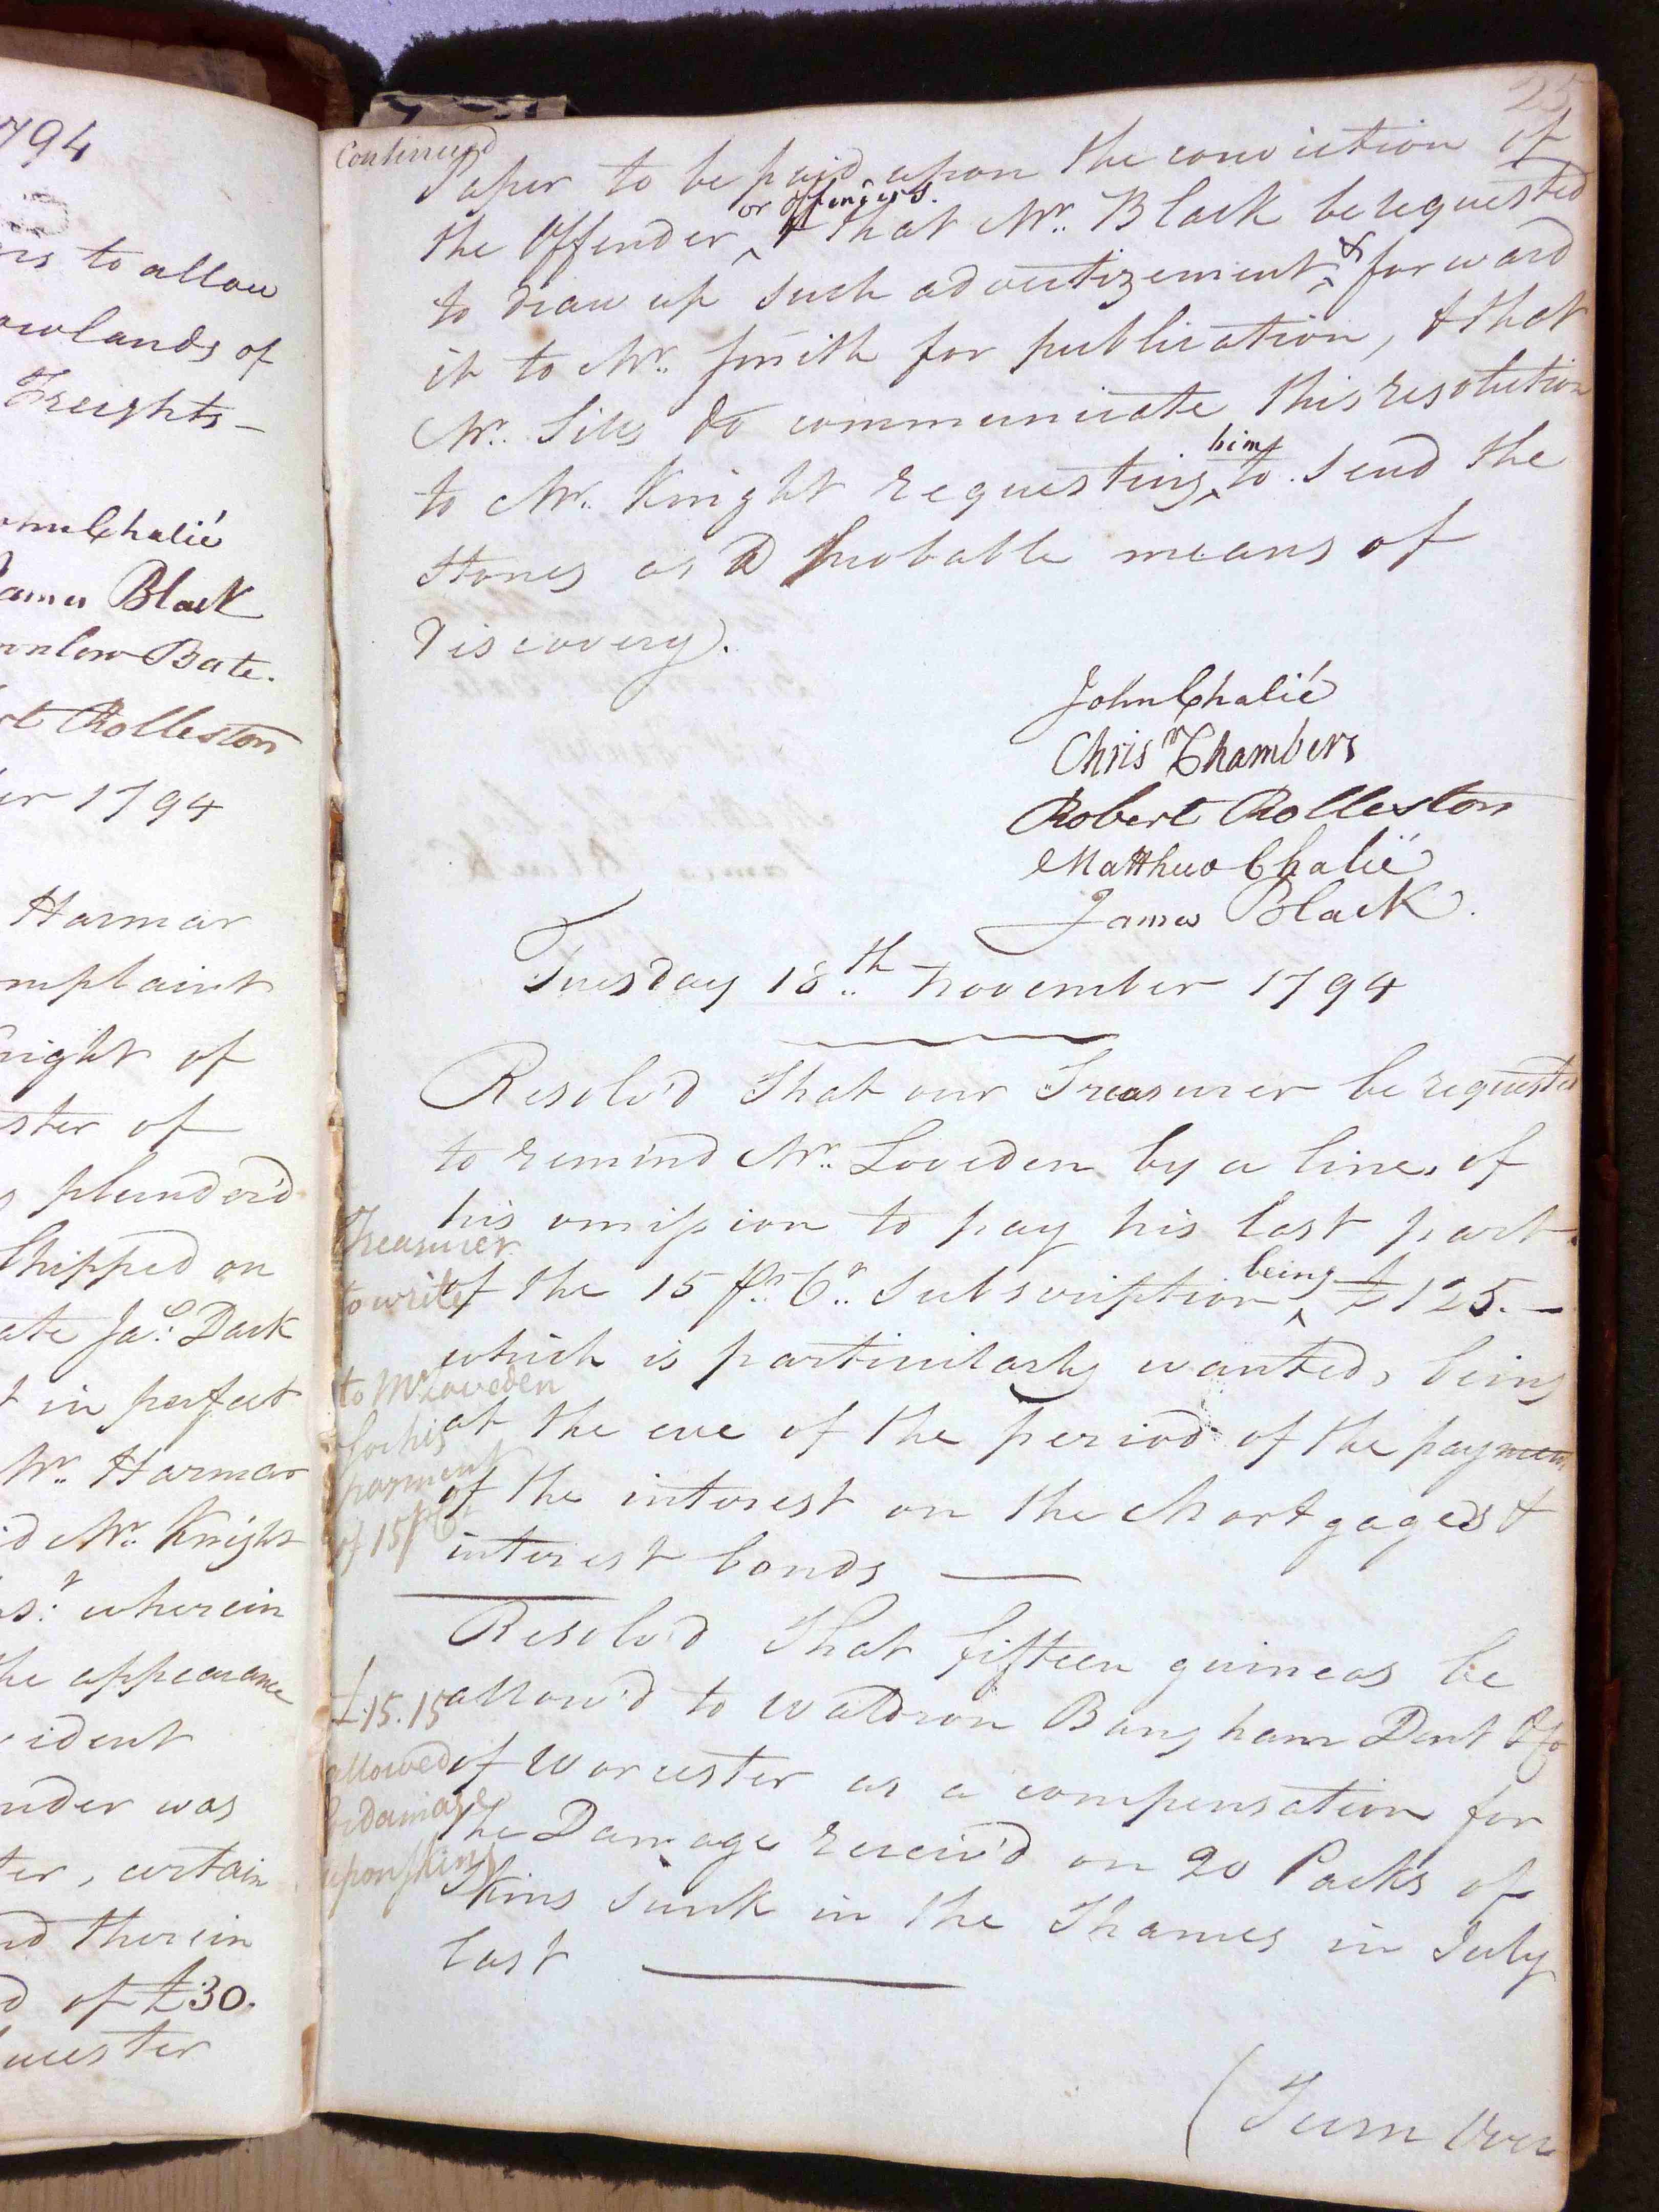 794
to allow
owlands of
Freights —
John Chalié
James Black
nlow Bate.
Rolleston
1794
Harmar
mplaint
night of
ster of
plunder'd
Shipped on
ate Jas. Dark
in perfect
Mr. Harmar
Mr. Knight
wherein
the appearance
ident
nder was
ter, certain
nd therein
of £30.
cester
25
Continued
Paper to be paid upon the conviction of
the Offender ^ or offenders. & that Mr. Black be requested
to draw up such advertizement ^ & forward
it to Mr. Smith for publication, & that
Mr. Sills do communicate this resolution
to Mr. Knight requesting ^ him to send the
Stones as a probable means of
Discovery.
John Chalié
Chrisr. Chambers
Robert Rolleston
Matthew Chalié
James Black.
Tuesday 18th. November 1794
Resolv'd That our Treasurer be requested
to remind Mr. Loveden by a line, of
his omission to pay his last part
of the 15 pr. Ct. Subscription ^ being £125. —
which is particularly wanted, being
at the eve of the period of the payment
of the interest on the Mortgages &
interest bonds —
Treasurer
to write
to Mr Loveden
for his
payment
of 15 pr Ct
Resolv'd That fifteen guineas be
allow'd to Waldron Bangham Dent & Co
of Worcester as a compensation for
the Damage receiv'd on 20 Packs of
Skins sunk in the Thames in July
last —
£15.15
allowed
for damage
upon skins
(Turn Over